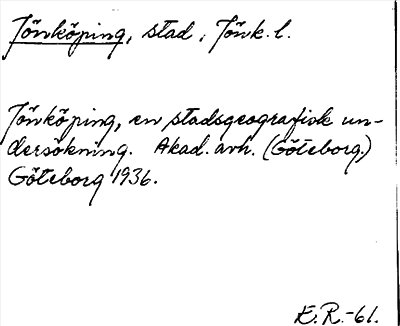 Jönköping, stad, Jönk. l.
Jönköping, en stadsgeografisk un-
dersökning. Akad. avh. (Göteborg.)
Göteborg 1936.
E.R.-61.